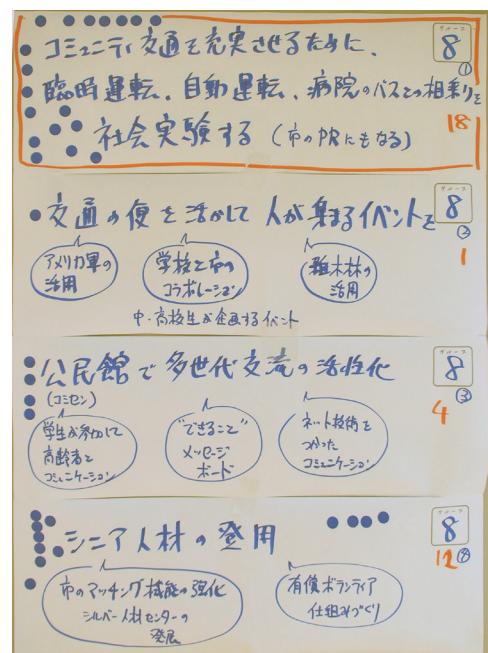 グループ
8
①
コミュニティ交通を充実させるために、
臨時運転、自動運転、病院のバスとの相乗りを
18
社会実験する(市のPRにもなる)
グループ
8
②
交通の便を活かして人が集まるイベントを
1
アメリカ軍の
活用
学校と市の
コラボレーション
雑木林の
活用
中・高校生が企画するイベント
グループ
8
③
公民館で多世代交流の活性化
(コミセン)
4
学生が参加して
高齢者と
コミュニケーション
"できること"
メッセージ
ボード
ネット技術を
つかった
コミュニケーション
グループ
8
④
シニア人材の登用
12
市のマッチング機能の強化
シルバー人材センターの
発展
有償ボランティア
仕組みづくり